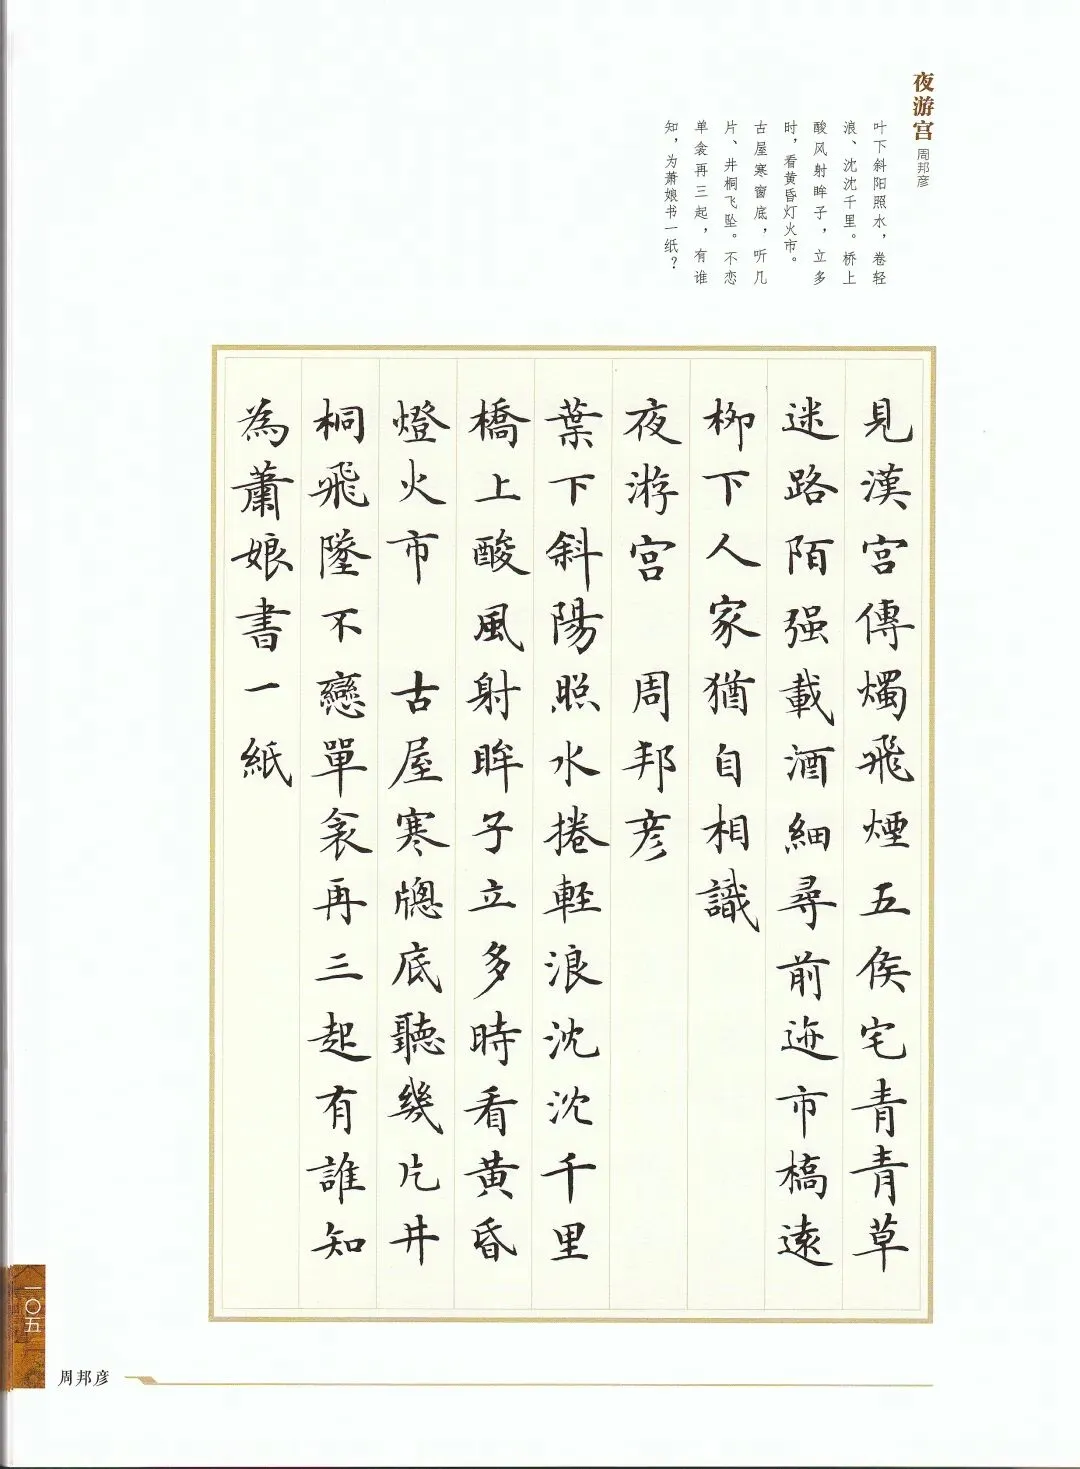 夜游宫
周邦彦
叶下斜阳照水，卷轻
浪、沈沈千里。桥上
酸风射眸子，立多
时，看黄昏灯火市。
古屋寒窗底，听几
片、井桐飞坠。不恋
单衾再三起，有谁
知，为萧娘书一纸？
見漢宫傳燭飛煙五侯宅青青草
迷路陌强載酒細尋前迹市橋遠
柳下人家猶自相識
夜游宫 周邦彦
葉下斜陽照水捲輕浪沈沈千里
橋上酸風射眸子立多時看黄昏
燈火市 古屋寒牕底聽幾片井
桐飛墜不戀單衾再三起有誰知
為蕭娘書一紙
一〇五
周邦彦